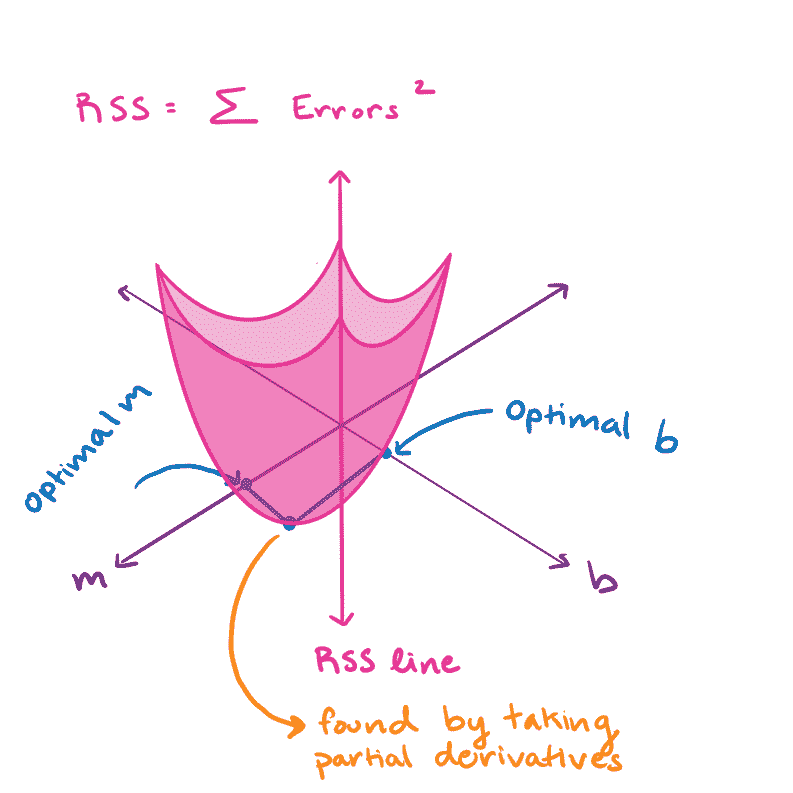 RSS = Σ Errors²
Optimal m
Optimal b
m
b
RSS line
found by taking
partial derivatives